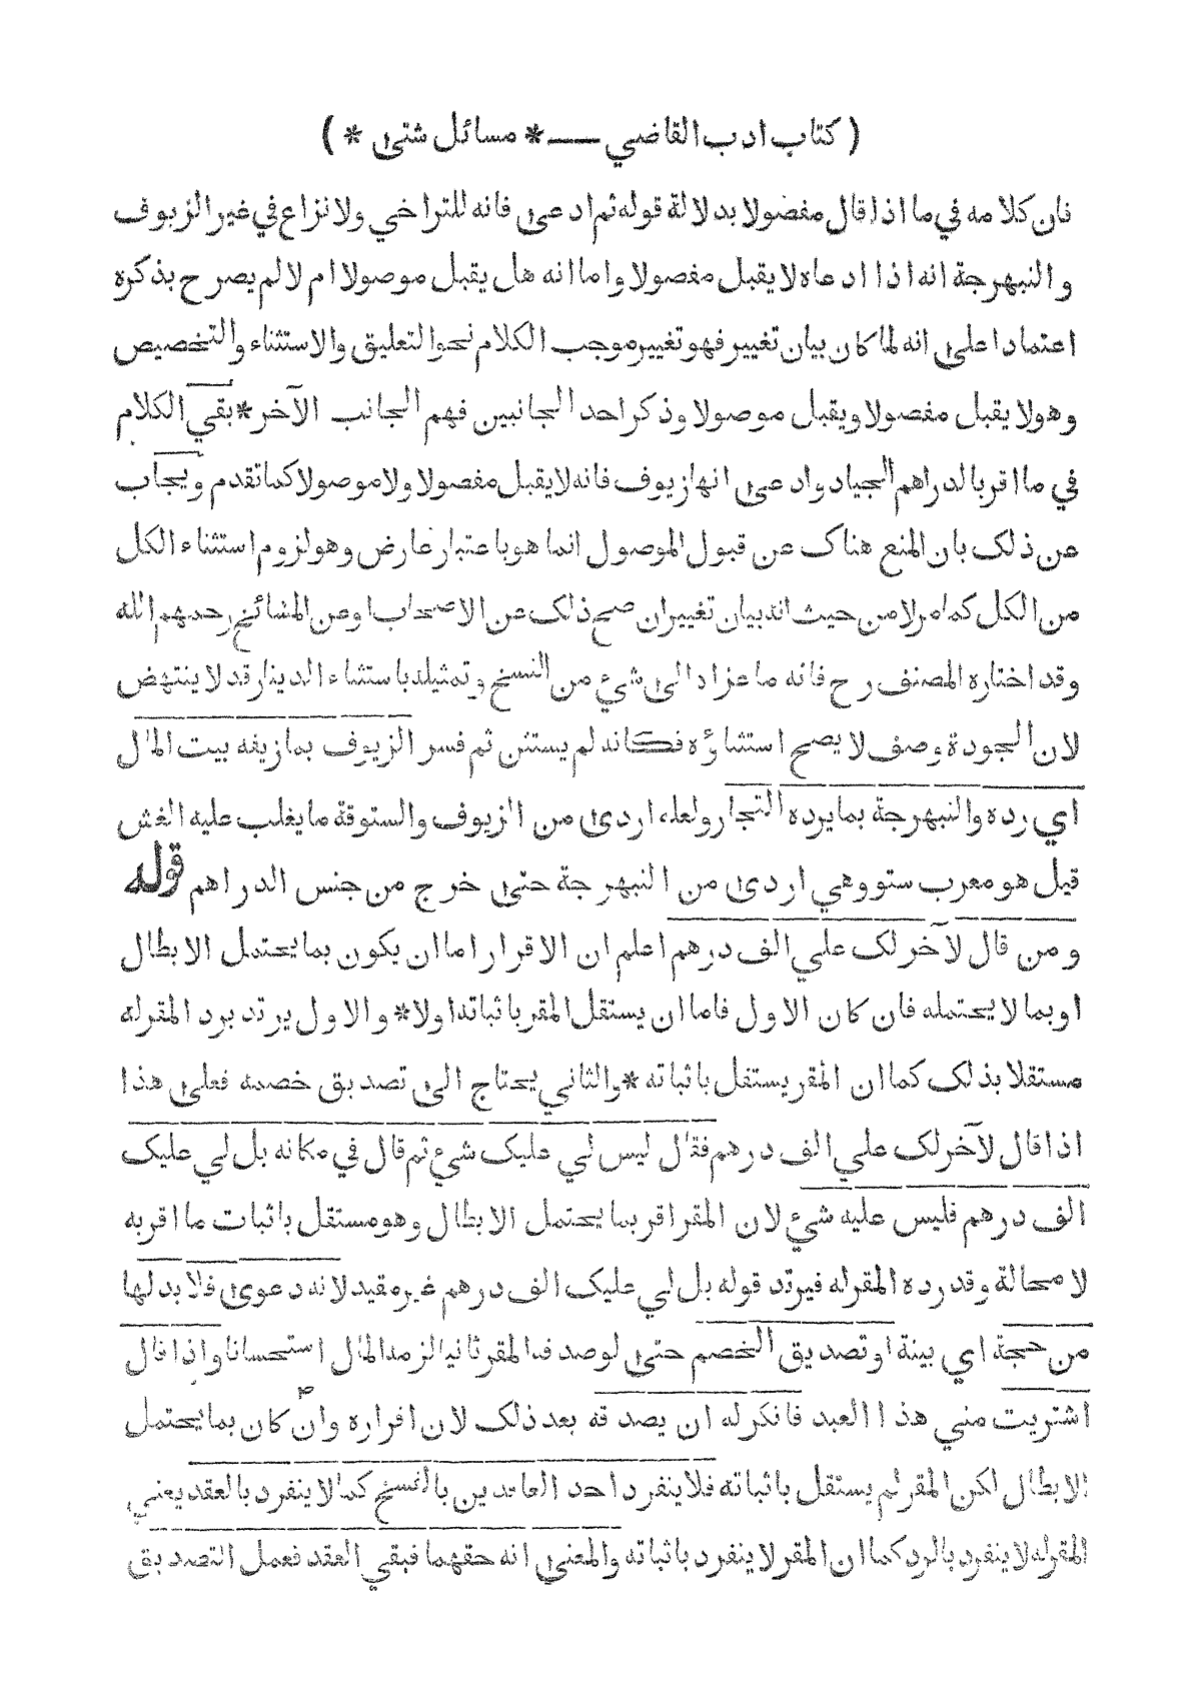 ( كتاب ادب القاضي —* مسائل شتى * )
فان كلامه في ما اذا قال مفصولا بدلالة قوله ثم ادعى فانه للتراخي ولا نزاع في غير الزيوف
والنبهرجة انه اذا ادعاه لا يقبل مفصولا واما انه هل يقبل موصولا ام لا لم يصرح بذكره
اعتمادا على انه لما كان بيان تغيير فهو تغيير موجب الكلام نحو التعليق والاستثناء والتخصيص
وهو لا يقبل مفصولا ويقبل موصولا وذكر احد الجانبين فهم الجانب الآخر * بقي الكلام
في ما اقر بالدراهم الجياد وادعى انها زيوف فانه لا يقبل مفصولا ولا موصولا كما تقدم ويجاب
عن ذلك بان المنع هناك عن قبول الموصول انما هو باعتبار عارض وهو لزوم استثناء الكل
من الكل كما مر لا من حيث انه بيان تغيير ان صح ذلك عن الاصحاب وعن المشائخ رحمهم الله
وقد اختاره المصنف رح فانه ما عزاه الى شيء من النسخ وتمثيله باستثناء الدينار قد لا ينتهض
لان الجودة وصف لا يصح استثناؤه فكانه لم يستثن ثم فسر الزيوف بما زيفه بيت المال
اي رده والنبهرجة بما يرده التجار ولعله اردى من الزيوف والستوقة ما يغلب عليه الغش
قيل هو معرب ستو وهي اردى من النبهرجة حتى خرج من جنس الدراهم قوله
ومن قال لآخر لك علي الف درهم اعلم ان الاقرار اما ان يكون بما يحتمل الابطال
او بما لا يحتمله فان كان الاول فاما ان يستقل المقر باثباته اولا * والاول يرتد برد المقر له
مستقلا بذلك كما ان المقر يستقل باثباته * والثاني يحتاج الى تصديق خصمه فعلى هذا
اذا قال لآخر لك علي الف درهم فقال ليس لي عليك شيء ثم قال في مكانه بل لي عليك
الف درهم فليس عليه شيء لان المقر اقر بما يحتمل الابطال وهو مستقل باثبات ما اقر به
لا محالة وقد رده المقر له فيرتد قوله بل لي عليك الف درهم غير مقيد لانه دعوى فلا بد لها
من حجة اي بينة او تصديق الخصم حتى لو صدقه المقر ثانيا لزمه المال استحسانا واذا قال
اشتريت مني هذا العبد فانكر له ان يصدقه بعد ذلك لان اقراره وان كان بما يحتمل
الابطال لكن المقر لم يستقل باثباته فلا ينفرد احد العاقدين بالفسخ كما لا ينفرد بالعقد يعني
المقر له لا ينفرد بالرد كما ان المقر لا ينفرد باثباته والمعنى انه حقهما فبقي العقد فعمل التصديق